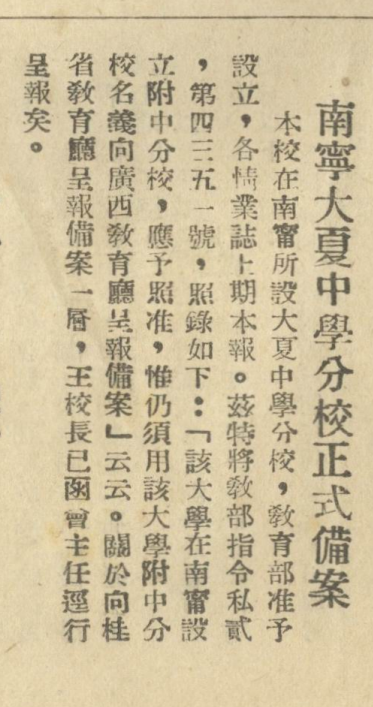 南寧大夏中學分校正式備案
本校在南甯所設大夏中學分校，敎育部准予
設立，各情業誌上期本報。茲特將敎部指令私貳
，第四三五一號，照錄如下：「該大學在南甯設
立附中分校，應予照准，惟仍須用該大學附中分
校名義向廣西敎育廳呈報備案」云云。關於向桂
省敎育廳呈報備案一層，王校長已函曾主任逕行
呈報矣。